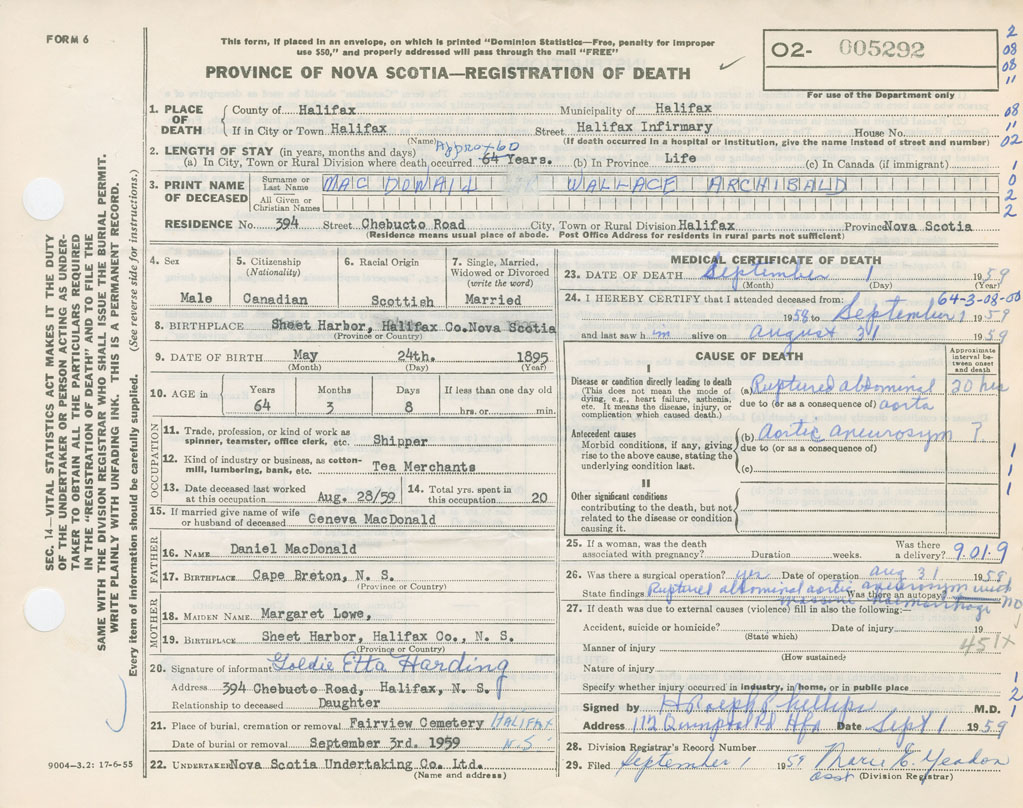 FORM 6
This form, if placed in an envelope, on which is printed "Dominion Statistics—Free, penalty for improper
use $50," and properly addressed will pass through the mail "FREE"
PROVINCE OF NOVA SCOTIA—REGISTRATION OF DEATH
O2- 005292
For use of the Department only
2
08
08
11
08
11
02
1
0
2
2
1. PLACE OF DEATH { County of Halifax Municipality of Halifax
If in City or Town Halifax Street Halifax Infirmary House No.
(Name) (If death occurred in a hospital or institution, give the name instead of street and number)
2. LENGTH OF STAY (in years, months and days) Approx 60
(a) In City, Town or Rural Division where death occurred 64 Years. (b) In Province Life (c) In Canada (if immigrant)
3. PRINT NAME OF DECEASED Surname or Last Name MAC DONALD WALLACE ARCHIBALD
All Given or Christian Names
RESIDENCE No. 394 Street Chebucto Road City, Town or Rural Division Halifax Province Nova Scotia
(Residence means usual place of abode. Post Office Address for residents in rural parts not sufficient)
4. Sex Male
5. Citizenship (Nationality) Canadian
6. Racial Origin Scottish
7. Single, Married, Widowed or Divorced (write the word) Married
8. BIRTHPLACE Sheet Harbor, Halifax Co.Nova Scotia
(Province or Country)
9. DATE OF BIRTH May 24th. 1895
(Month) (Day) (Year)
10. AGE in Years 64 Months 3 Days 8 If less than one day old hrs. or min.
OCCUPATION
11. Trade, profession, or kind of work as spinner, teamster, office clerk, etc. Shipper
12. Kind of industry or business, as cotton-mill, lumbering, bank, etc. Tea Merchants
13. Date deceased last worked at this occupation Aug. 28/59 14. Total yrs. spent in this occupation 20
15. If married give name of wife or husband of deceased Geneva MacDonald
FATHER
16. NAME Daniel MacDonald
17. BIRTHPLACE Cape Breton, N. S.
(Province or Country)
MOTHER
18. MAIDEN NAME Margaret Lowe,
19. BIRTHPLACE Sheet Harbor, Halifax Co., N. S.
(Province or Country)
20. Signature of informant Goldie Etta Harding
Address 394 Chebucto Road, Halifax, N. S.
Relationship to deceased Daughter
21. Place of burial, cremation or removal Fairview Cemetery HALIFAX
Date of burial or removal September 3rd. 1959 N.S.
22. UNDERTAKER Nova Scotia Undertaking Co. Ltd.
(Name and address)
MEDICAL CERTIFICATE OF DEATH
23. DATE OF DEATH September 1 1959
(Month) (Day) (Year)
64-3-08-00
24. I HEREBY CERTIFY that I attended deceased from:
1958 to September 1 1959
and last saw him alive on August 31 1959
CAUSE OF DEATH
Approximate interval between onset and death
I
Disease or condition directly leading to death (a) Ruptured abdominal 20 hrs
(This does not mean the mode of dying, e.g., heart failure, asthenia, etc. It means the disease, injury, or complication which caused death.)
due to (or as a consequence of) aorta
Antecedent causes (b) Aortic aneurosym ?
Morbid conditions, if any, giving rise to the above cause, stating the underlying condition last.
due to (or as a consequence of)
(c)
II
Other significant conditions
contributing to the death, but not related to the disease or condition causing it.
1
1
1
25. If a woman, was the death associated with pregnancy? Duration weeks. Was there a delivery? 9.01.9
26. Was there a surgical operation? yes Date of operation Aug 31 1959
State findings Ruptured abdominal aortic aneurosym with
Was there an autopsy? no
hemorrhage
27. If death was due to external causes (violence) fill in also the following:—
Accident, suicide or homicide? Date of injury 19
(State which)
Manner of injury 451X
(How sustained)
Nature of injury
Specify whether injury occurred in industry, in home, or in public place
1
2
1
Signed by H Ralph Phillips M.D.
Address 112 Quinpool Rd Hfx Date Sept 1 1959
28. Division Registrar's Record Number
29. Filed September 1 1959 Marie E. Yeadon
asst (Division Registrar)
SEC. 14—VITAL STATISTICS ACT MAKES IT THE DUTY
OF THE UNDERTAKER OR PERSON ACTING AS UNDER-
TAKER TO OBTAIN ALL THE PARTICULARS REQUIRED
IN THE "REGISTRATION OF DEATH" AND TO FILE THE
SAME WITH THE DIVISION REGISTRAR WHO SHALL ISSUE THE BURIAL PERMIT.
WRITE PLAINLY WITH UNFADING INK. THIS IS A PERMANENT RECORD.
Every item of information should be carefully supplied. (See reverse side for instructions.)
9004-3.2: 17-6-55